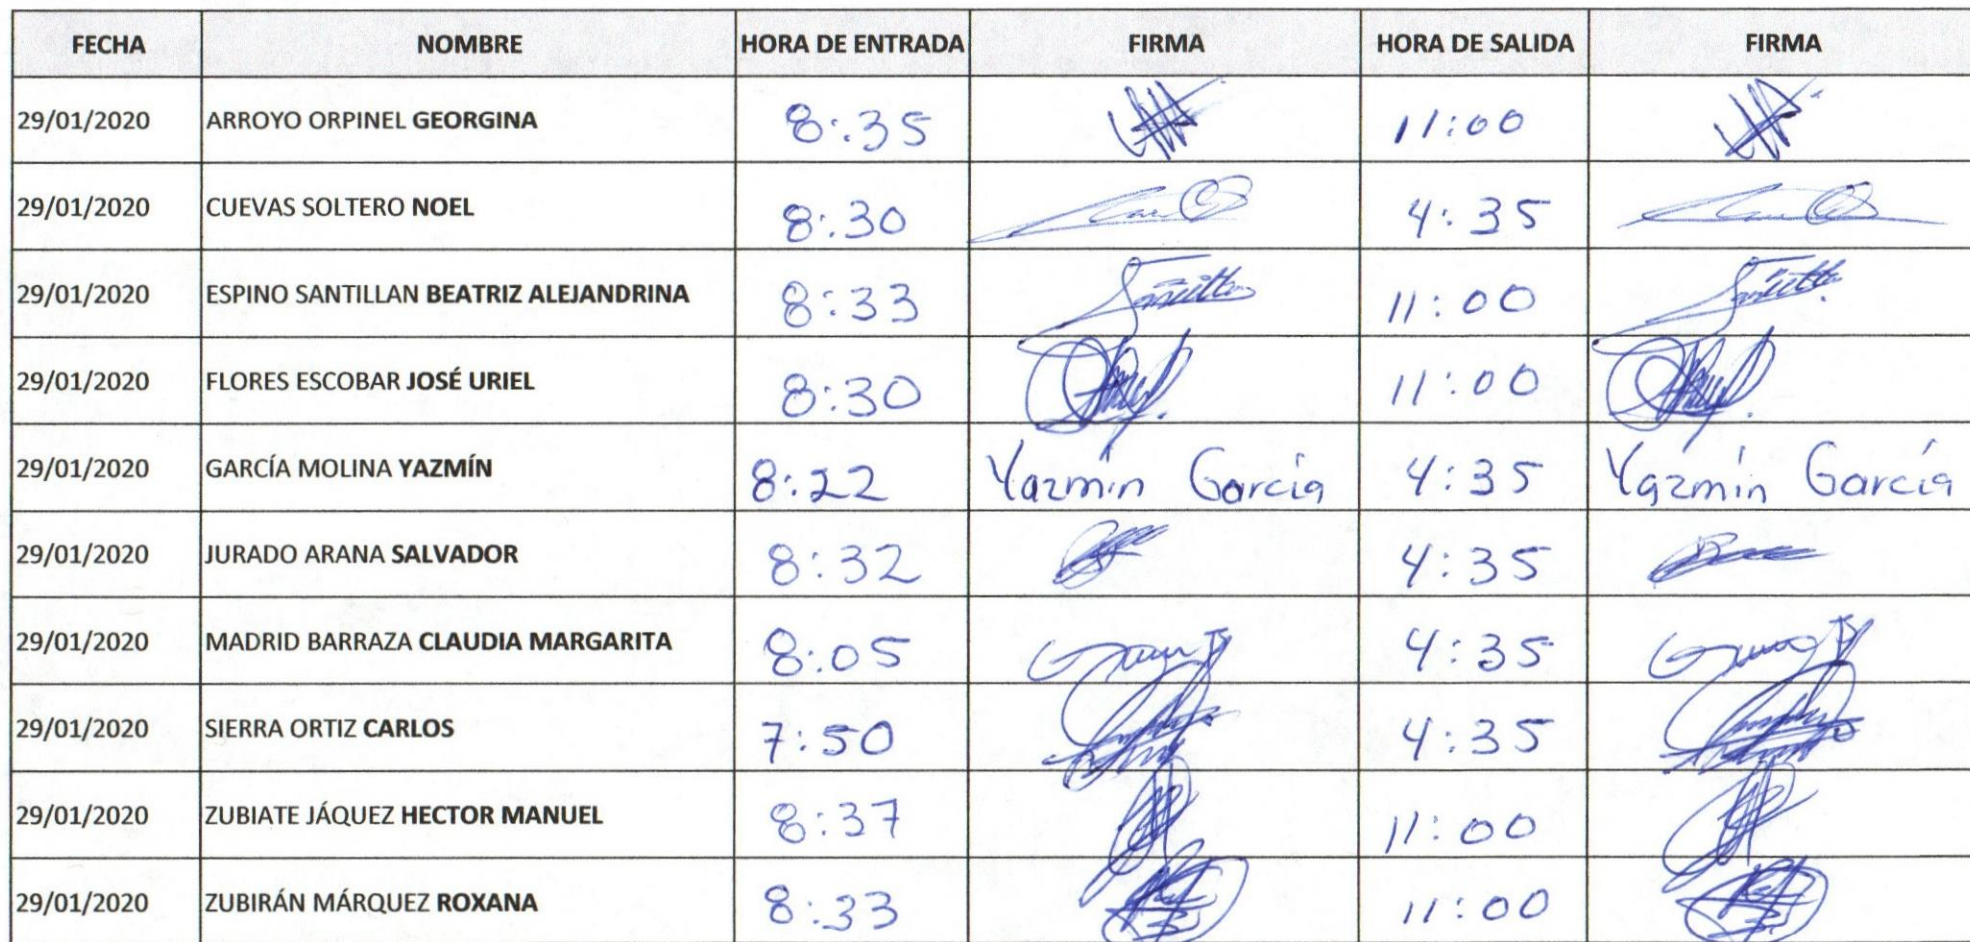 FECHA NOMBRE HORA DE ENTRADA FIRMA HORA DE SALIDA FIRMA
29/01/2020 ARROYO ORPINEL GEORGINA 8:35 11:00
29/01/2020 CUEVAS SOLTERO NOEL 8:30 4:35
29/01/2020 ESPINO SANTILLAN BEATRIZ ALEJANDRINA 8:33 11:00
29/01/2020 FLORES ESCOBAR JOSÉ URIEL 8:30 11:00
29/01/2020 GARCÍA MOLINA YAZMÍN 8:22 Yazmín García 4:35 Yazmín García
29/01/2020 JURADO ARANA SALVADOR 8:32 4:35
29/01/2020 MADRID BARRAZA CLAUDIA MARGARITA 8:05 4:35
29/01/2020 SIERRA ORTIZ CARLOS 7:50 4:35
29/01/2020 ZUBIATE JÁQUEZ HECTOR MANUEL 8:37 11:00
29/01/2020 ZUBIRÁN MÁRQUEZ ROXANA 8:33 11:00